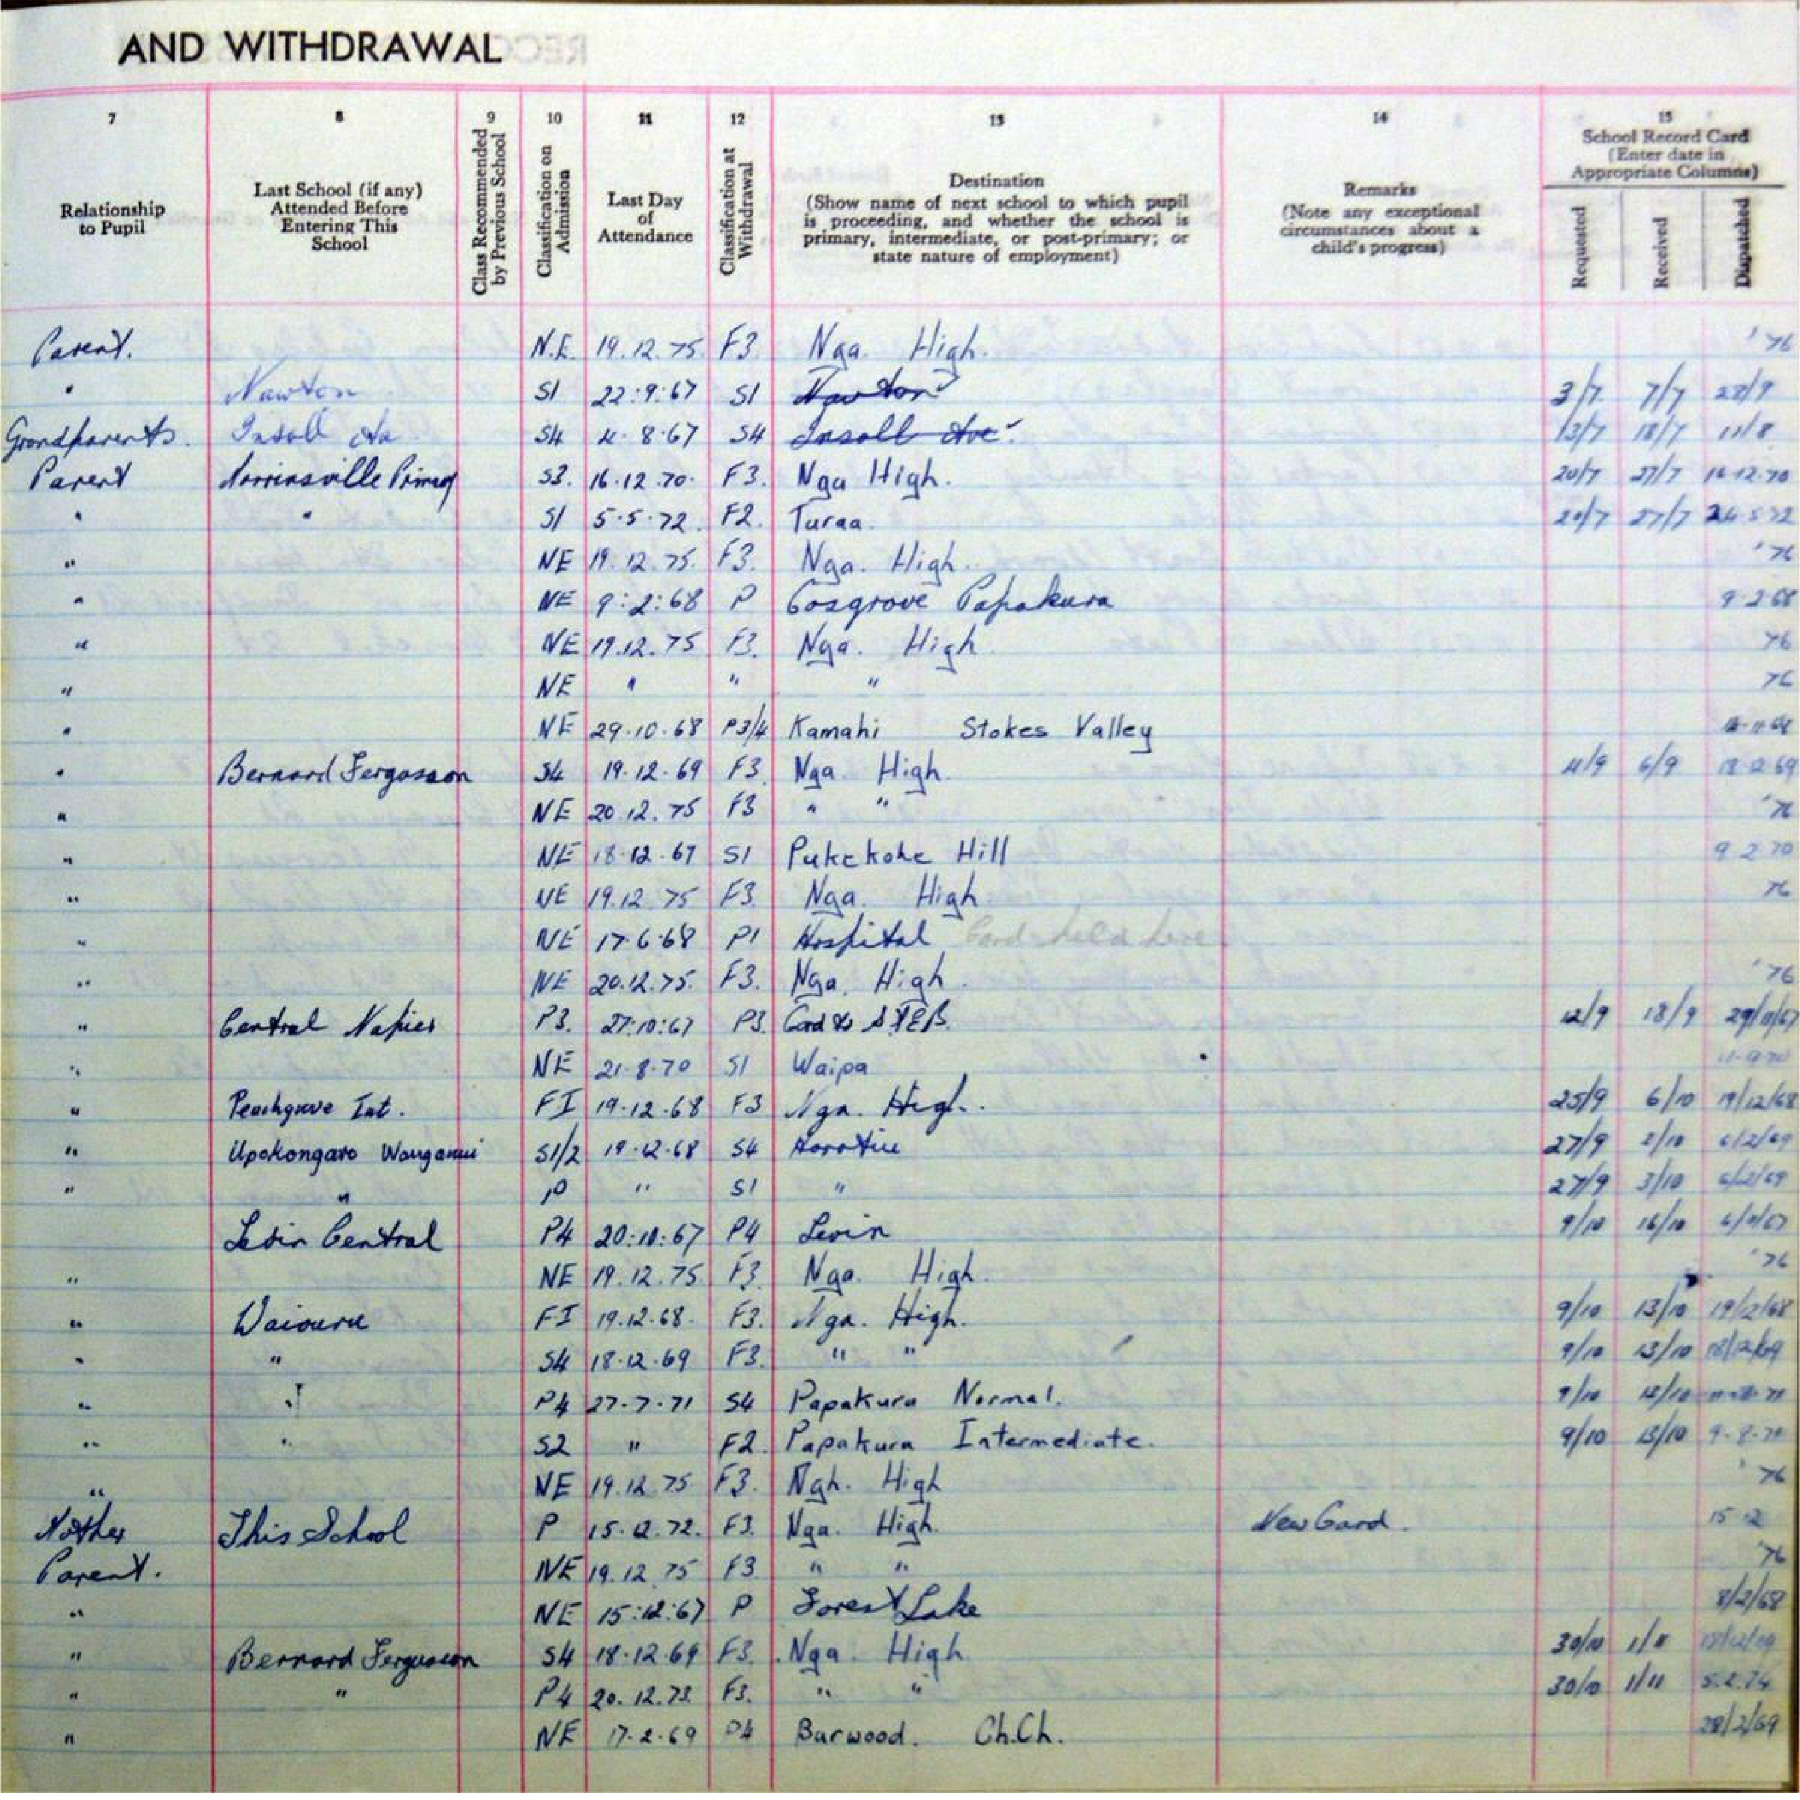 AND WITHDRAWAL
7 8 9 10 11 12 13 14 15
Relationship to Pupil
Last School (if any) Attended Before Entering This School
Class Recommended by Previous School
Classification on Admission
Last Day of Attendance
Classification at Withdrawal
Destination (Show name of next school to which pupil is proceeding, and whether the school is primary, intermediate, or post-primary; or state nature of employment)
Remarks (Note any exceptional circumstances about a child's progress)
School Record Card (Enter date in Appropriate Columns)
Requested Received Dispatched
Parent. N.E. 19.12.75 F3. Nga. High. '76
" Newton S1 22:9:67 S1 Newton 3/7 7/7 28/9
Grandparents. Insoll Ave S4 4.8.67 S4 Insoll Ave. 13/7 18/7 11/8
Parent Morrinsville Primary S3. 16.12.70. F3. Nga High. 20/7 27/7 16.12.70
" " S1 5.5.72. F2. Turua. 20/7 27/7 24.5.72
" NE 19.12.75. F3. Nga. High. '76
" NE 9:2:68 P Cosgrove Papakura 9.2.68
" NE 19.12.75 F3. Nga. High. 76
" NE " " " 76
" NE 29.10.68 P3/4 Kamahi Stokes Valley
" Bernard Fergusson S4 19.12.69 F3. Nga. High. 4/9 6/9 18.12.69
" NE 20.12.75 F3 " " '76
" NE 18.12.67 S1 Pukekohe Hill 9.2.70
" NE 19.12.75 F3. Nga. High. 76
" NE 17.6.68 P1 Hospital Card held here
" NE 20.12.75. F3. Nga. High. '76
" Central Napier P3. 27:10:67 P3. Card to 12/9 18/9 29/11/67
" NE 21.8.70 S1 Waipa 11.9.70
" Peachgrove Int. FI 19.12.68 F3 Nga. High. 25/9 6/10 19/12/68
" Upokongaro Wanganui S1/2 19.12.68 S4 Horotiu 27/9 2/10 6/2/69
" " P " S1 " 27/9 3/10 6/2/69
Levin Central P4 20:10:67 P4 Levin 9/10 16/10 6/11/67
" NE 19.12.75 F3. Nga. High. '76
" Waiouru FI 19.12.68. F3. Nga. High. 9/10 13/10 19/12/68
" " S4 18.12.69 F3. " " 9/10 13/10 18/12/69
" " P4 27.7.71 S4 Papakura Normal. 9/10 12/10
" " S2 " F2. Papakura Intermediate. 9/10 13/10
" NE 19.12.75 F3. Ngh. High '76
Mother This School P 15.12.72. F3. Nga. High. New Card. 15.12
Parent. NE 19.12.75 F3. " " '76
" NE 15:12:67 P Forest Lake 8/2/68
" Bernard Fergusson S4 18.12.69 F3. Nga. High 30/10 1/11 18/12/69
" " P4 20.12.73. F3. " " 30/10 1/11 5.2.74
" NE 17.2.69 P4 Burwood. Ch.Ch. 28/2/69